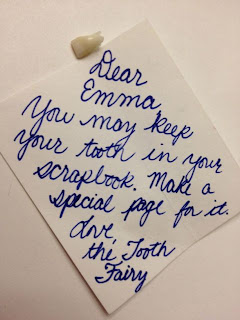 Dear
Emma,
You may keep
your tooth in your
scrapbook. Make a
special page for it.
Love,
the Tooth
Fairy